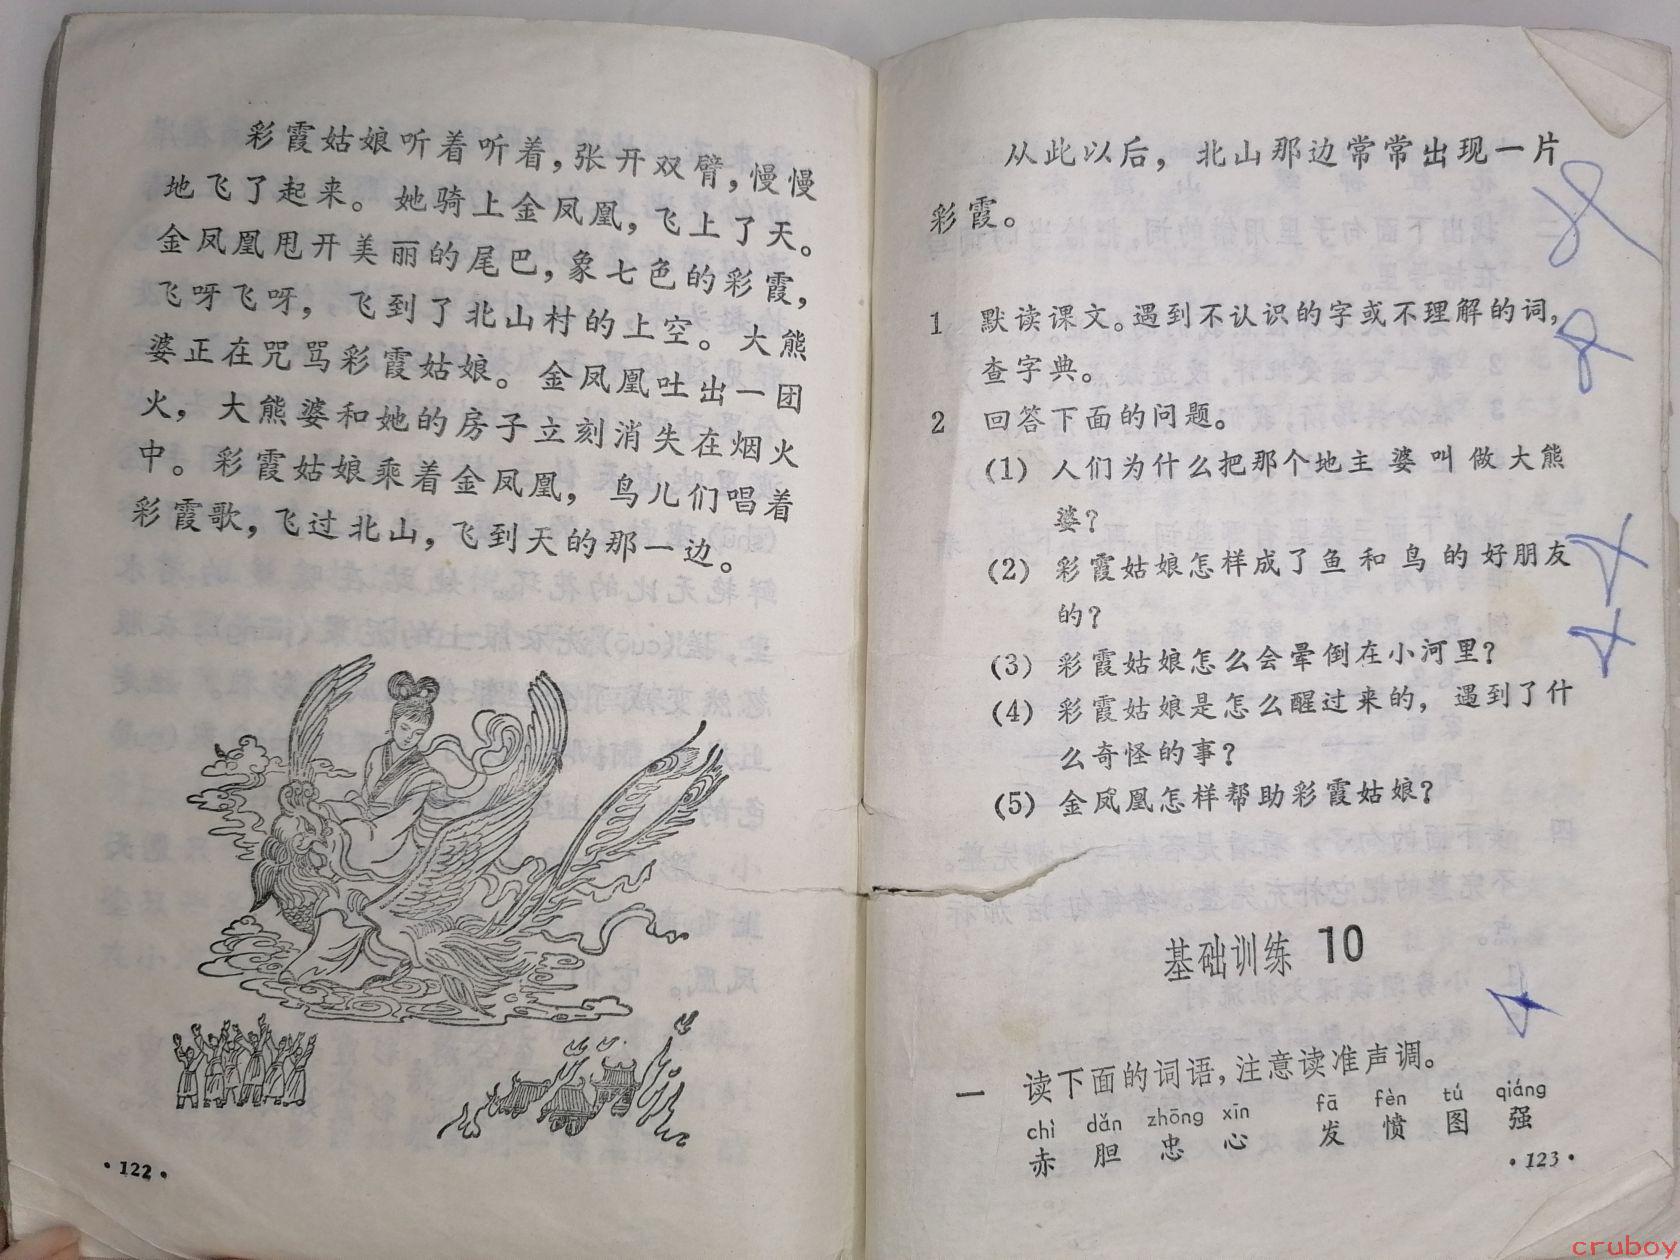 彩霞姑娘听着听着，张开双臂，慢慢
地飞了起来。她骑上金凤凰，飞上了天。
金凤凰甩开美丽的尾巴，象七色的彩霞，
飞呀飞呀，飞到了北山村的上空。大熊
婆正在咒骂彩霞姑娘。金凤凰吐出一团
火，大熊婆和她的房子立刻消失在烟火
中。彩霞姑娘乘着金凤凰，鸟儿们唱着
彩霞歌，飞过北山，飞到天的那一边。
·122·
从此以后，北山那边常常出现一片
彩霞。
1 默读课文。遇到不认识的字或不理解的词，
查字典。
2 回答下面的问题。
(1) 人们为什么把那个地主婆叫做大熊
婆？
(2) 彩霞姑娘怎样成了鱼和鸟的好朋友
的？
(3) 彩霞姑娘怎么会晕倒在小河里？
(4) 彩霞姑娘是怎么醒过来的，遇到了什
么奇怪的事？
(5) 金凤凰怎样帮助彩霞姑娘？
基础训练 10
一 读下面的词语，注意读准声调。
chì dǎn zhōng xīn fā fèn tú qiáng
赤胆忠心 发愤图强
·123·
cruboy